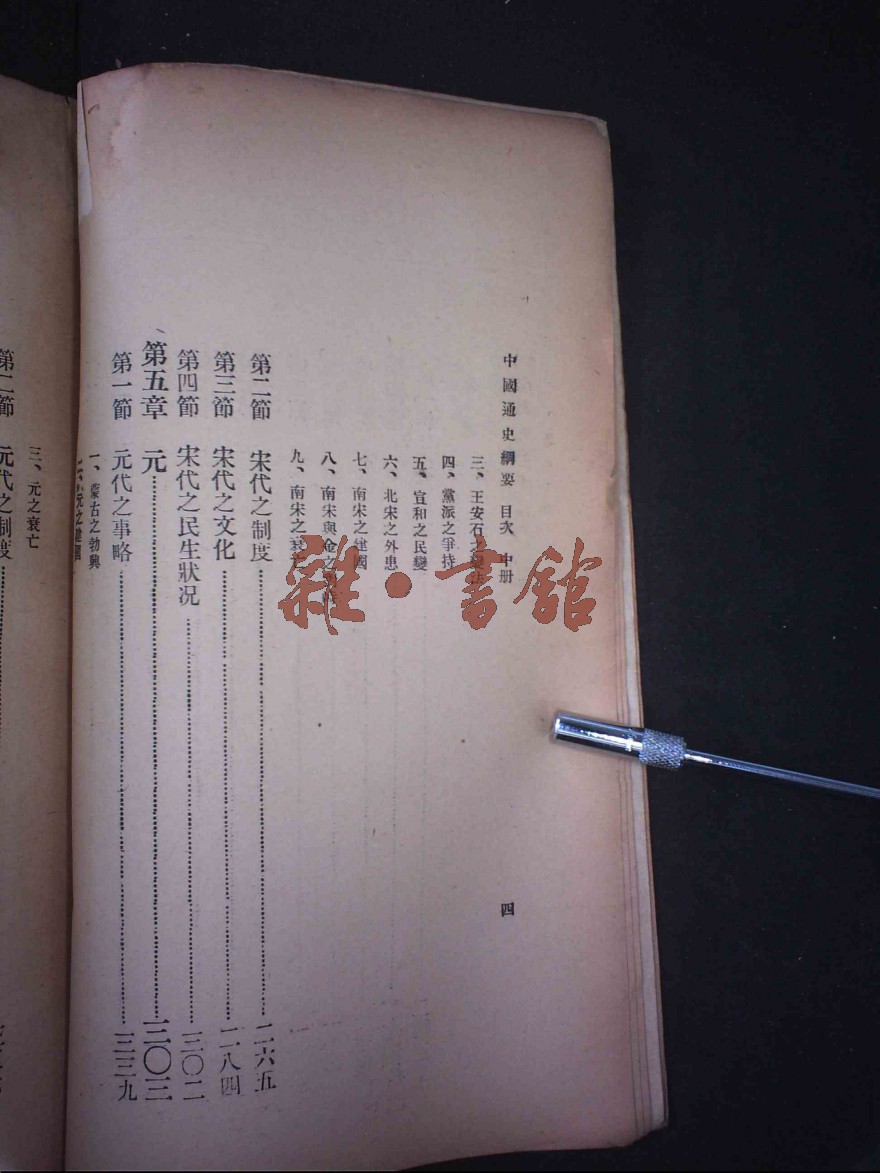 中國通史綱要 目次 中册
四
三、王安石之變法
四、黨派之爭持
五、宣和之民變
六、北宋之外患
七、南宋之建國
八、南宋與金之
九、南宋之衰亡
第二節 宋代之制度……二六五
第三節 宋代之文化……二八四
第四節 宋代之民生狀况……三〇二
第五章 元……三〇三
第一節 元代之事略……三三九
一、蒙古之勃興
三、元之衰亡
第二節 元代之制度……
雜·書館